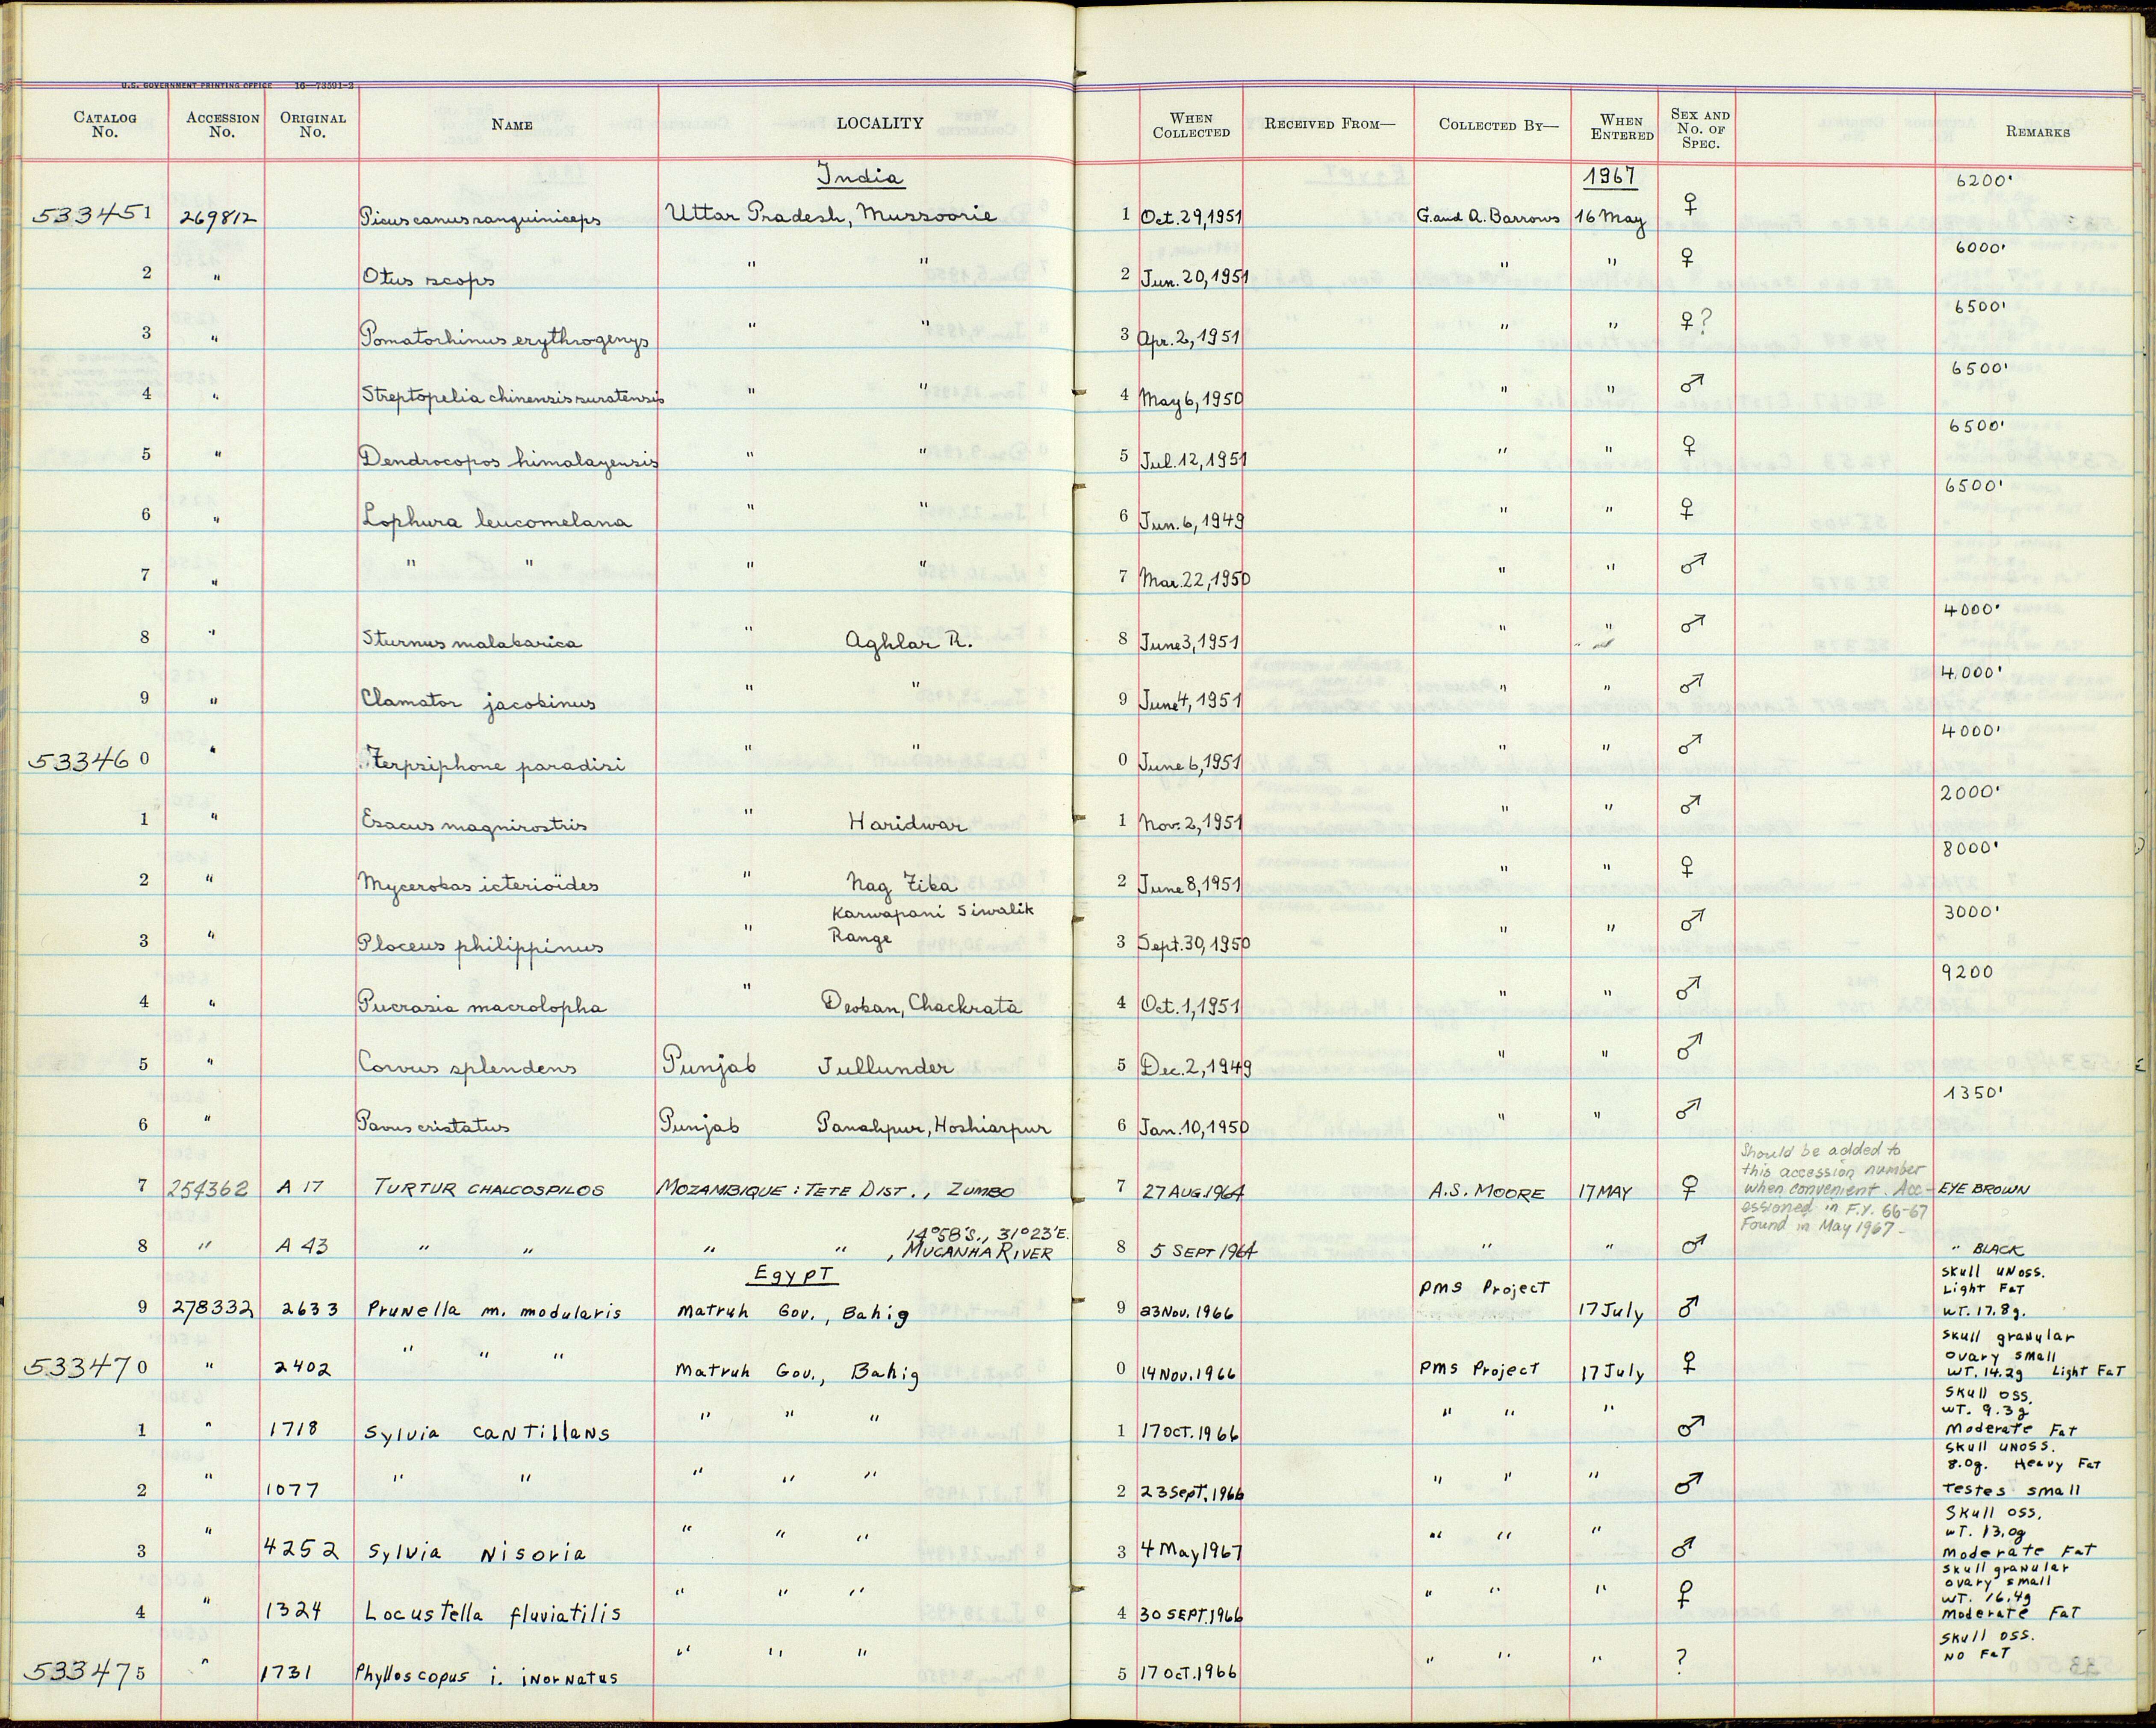 U.S. GOVERNMENT PRINTING OFFICE 16—73591-2
CATALOG No. ACCESSION No. ORIGINAL No. NAME LOCALITY WHEN COLLECTED RECEIVED FROM— COLLECTED BY— WHEN ENTERED SEX AND No. OF SPEC. REMARKS
India 1967
533451 269812 Picus canus sanguiniceps Uttar Pradesh, Mussoorie 1 Oct. 29, 1951 G. and A. Barrows 16 May ♀ 6200'
2 " Otus scops " " 2 Jun. 20, 1951 " " ♀ 6000'
3 " Pomatorhinus erythrogenys " " 3 Apr. 2, 1951 " " ♀? 6500'
4 " Streptopelia chinensis suratensis " " 4 May 6, 1950 " " ♂ 6500'
5 " Dendrocopos himalayensis " " 5 Jul. 12, 1951 " " ♀ 6500'
6 " Lophura leucomelana " " 6 Jun. 6, 1949 " " ♀ 6500'
7 " " " " " 7 Mar. 22, 1950 " " ♂
8 " Sturnus malabarica " Aghlar R. 8 June 3, 1951 " " ♂ 4000'
9 " Clamator jacobinus " " 9 June 4, 1951 " " ♂ 4,000'
533460 " Terpsiphone paradisi " " 0 June 6, 1951 " " ♂ 4000'
1 " Esacus magnirostris " Haridwar 1 Nov. 2, 1951 " " ♂ 2000'
2 " Mycerobas icterioïdes " Nag Tiba 2 June 8, 1951 " " ♀ 8000'
Karwapani Siwalik
3 " Ploceus philippinus " Range 3 Sept. 30, 1950 " " ♂ 3000'
4 " Pucrasia macrolopha " Deoban, Chackrata 4 Oct. 1, 1951 " " ♂ 9200
5 " Corvus splendens Punjab Jullunder 5 Dec. 2, 1949 " " ♂
6 " Pavus cristatus Punjab Panahpur, Hoshiarpur 6 Jan. 10, 1950 " " ♂ 1350'
Should be added to
this accession number
7 254362 A 17 TURTUR CHALCOSPILOS MOZAMBIQUE: TETE DIST., ZUMBO 7 27 AUG. 1964 A.S. MOORE 17 MAY ♀ when convenient. Acc- EYE BROWN
essioned in F.Y. 66-67
Found in May 1967-
14°58'S., 31°23'E.
8 " A 43 " " " " , MUCANHA RIVER 8 5 SEPT 1964 " " ♂ " BLACK
Egypt
Skull unoss.
PMS Project Light Fat
9 278332 2633 Prunella m. modularis Matruh Gov., Bahig 9 23 Nov. 1966 17 July ♂ WT. 17.8g.
Skull granular
ovary small
533470 " 2402 " " " Matruh Gov., Bahig 0 14 Nov. 1966 PMS Project 17 July ♀ WT. 14.2g Light Fat
Skull oss.
WT. 9.3g
1 " 1718 Sylvia cantillans " " " 1 17 Oct. 1966 " " " ♂ Moderate Fat
Skull unoss.
8.0g. Heavy Fat
2 " 1077 " " " " " 2 23 Sept. 1966 " " " ♂ Testes small
Skull oss.
WT. 13.0g
3 " 4252 Sylvia nisoria " " " 3 4 May 1967 " " " ♂ Moderate Fat
Skull granular
ovary small
WT. 16.4g
4 " 1324 Locustella fluviatilis " " " 4 30 SEPT. 1966 " " " ♀ Moderate Fat
Skull oss.
No Fat
533475 " 1731 Phylloscopus i. inornatus " " " 5 17 Oct. 1966 " " " ?